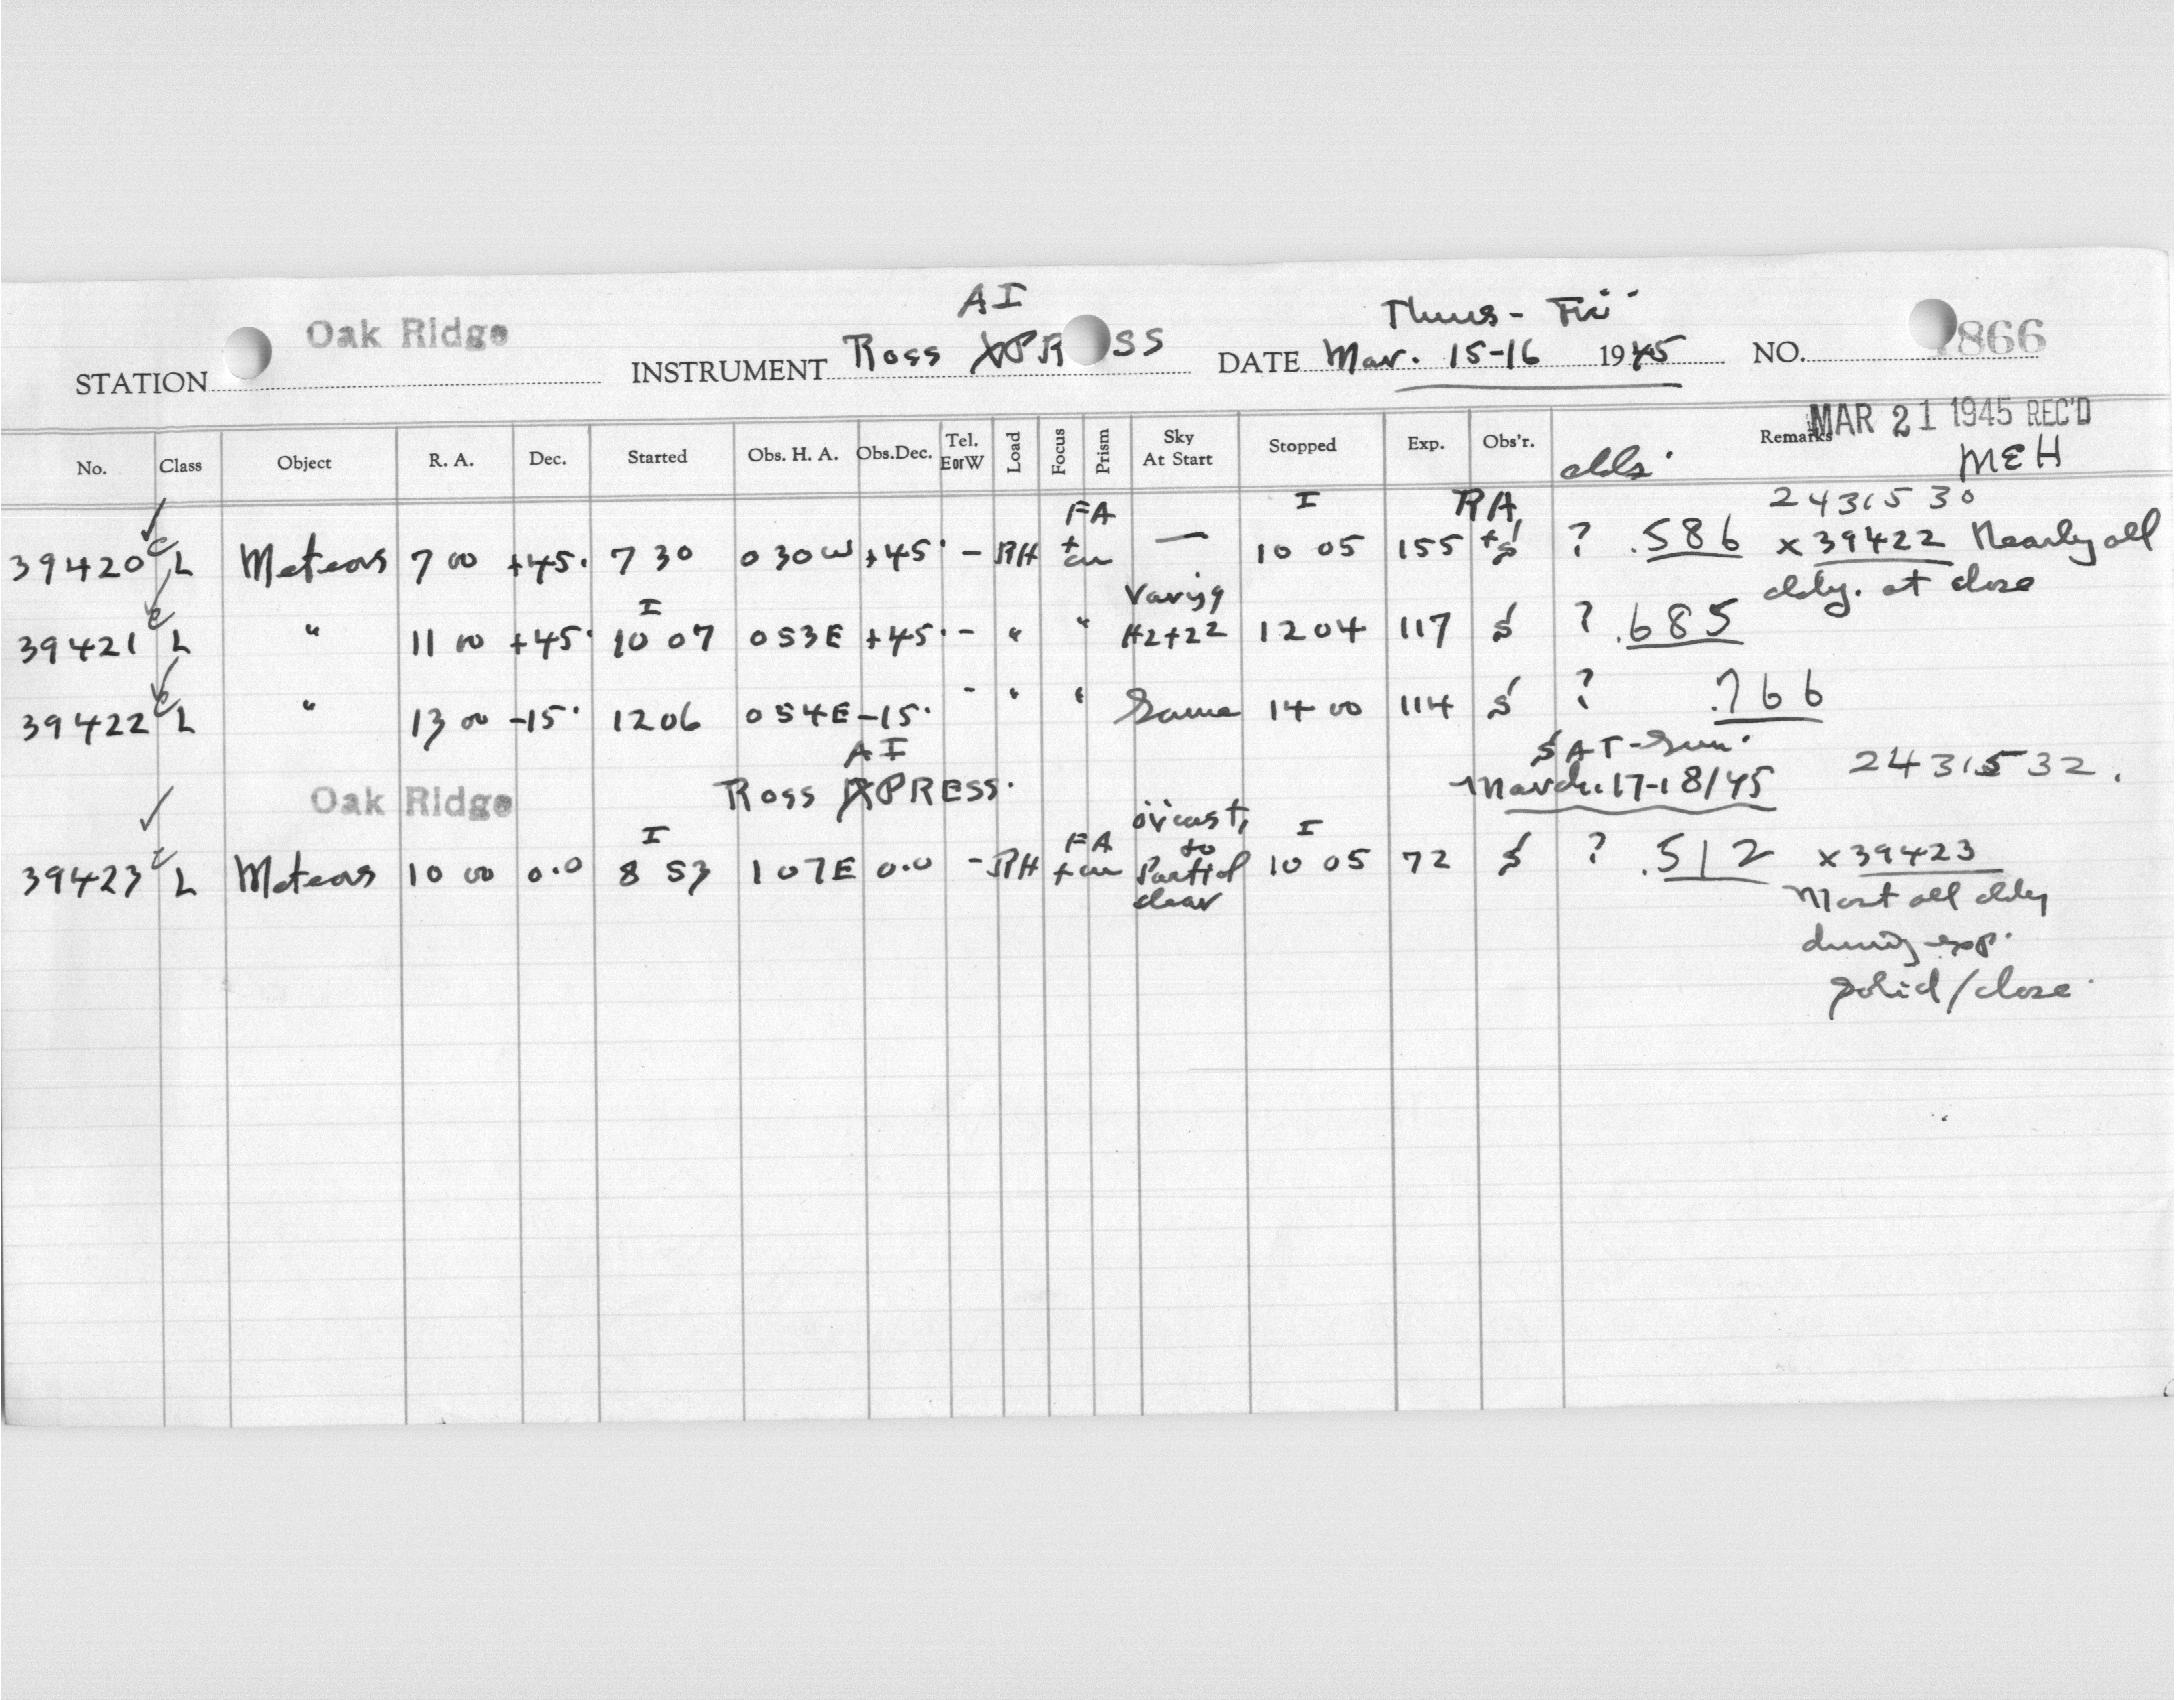 AI Thurs - Fri
STATION Oak Ridge INSTRUMENT Ross XPR SS DATE Mar. 15-16 1945 NO. 866
MAR 21 1945 REC'D
No. Class Object R. A. Dec. Started Obs. H. A. Obs.Dec. Tel. EorW Load Focus Prism Sky At Start Stopped Exp. Obs'r. Remarks
MEH
FA I RA 2431530
39420 L Meteors 7 00 +45° 7 30 0 30 W +45° - RH + — 10 05 155 + S ? .586 x 39422 Nearly all
cldy. at close
I Varying
39421 L " 11 00 +45° 10 07 0 53 E +45° - " " H2+2² 12 04 117 S ? .685
39422 L " 13 00 -15° 12 06 0 54 E -15° - " " Same 14 00 114 S ? .766
AI SAT-Sun.
Oak Ridge Ross XPRESS. March.17-18/45 2431532.
I FA ov'cast, to I
39423 L Meteors 10 00 0.0 8 53 1 07 E 0.0 - RH + Partial 10 05 72 S ? .512 x 39423
clear Most all cldy
during exp.
solid/close